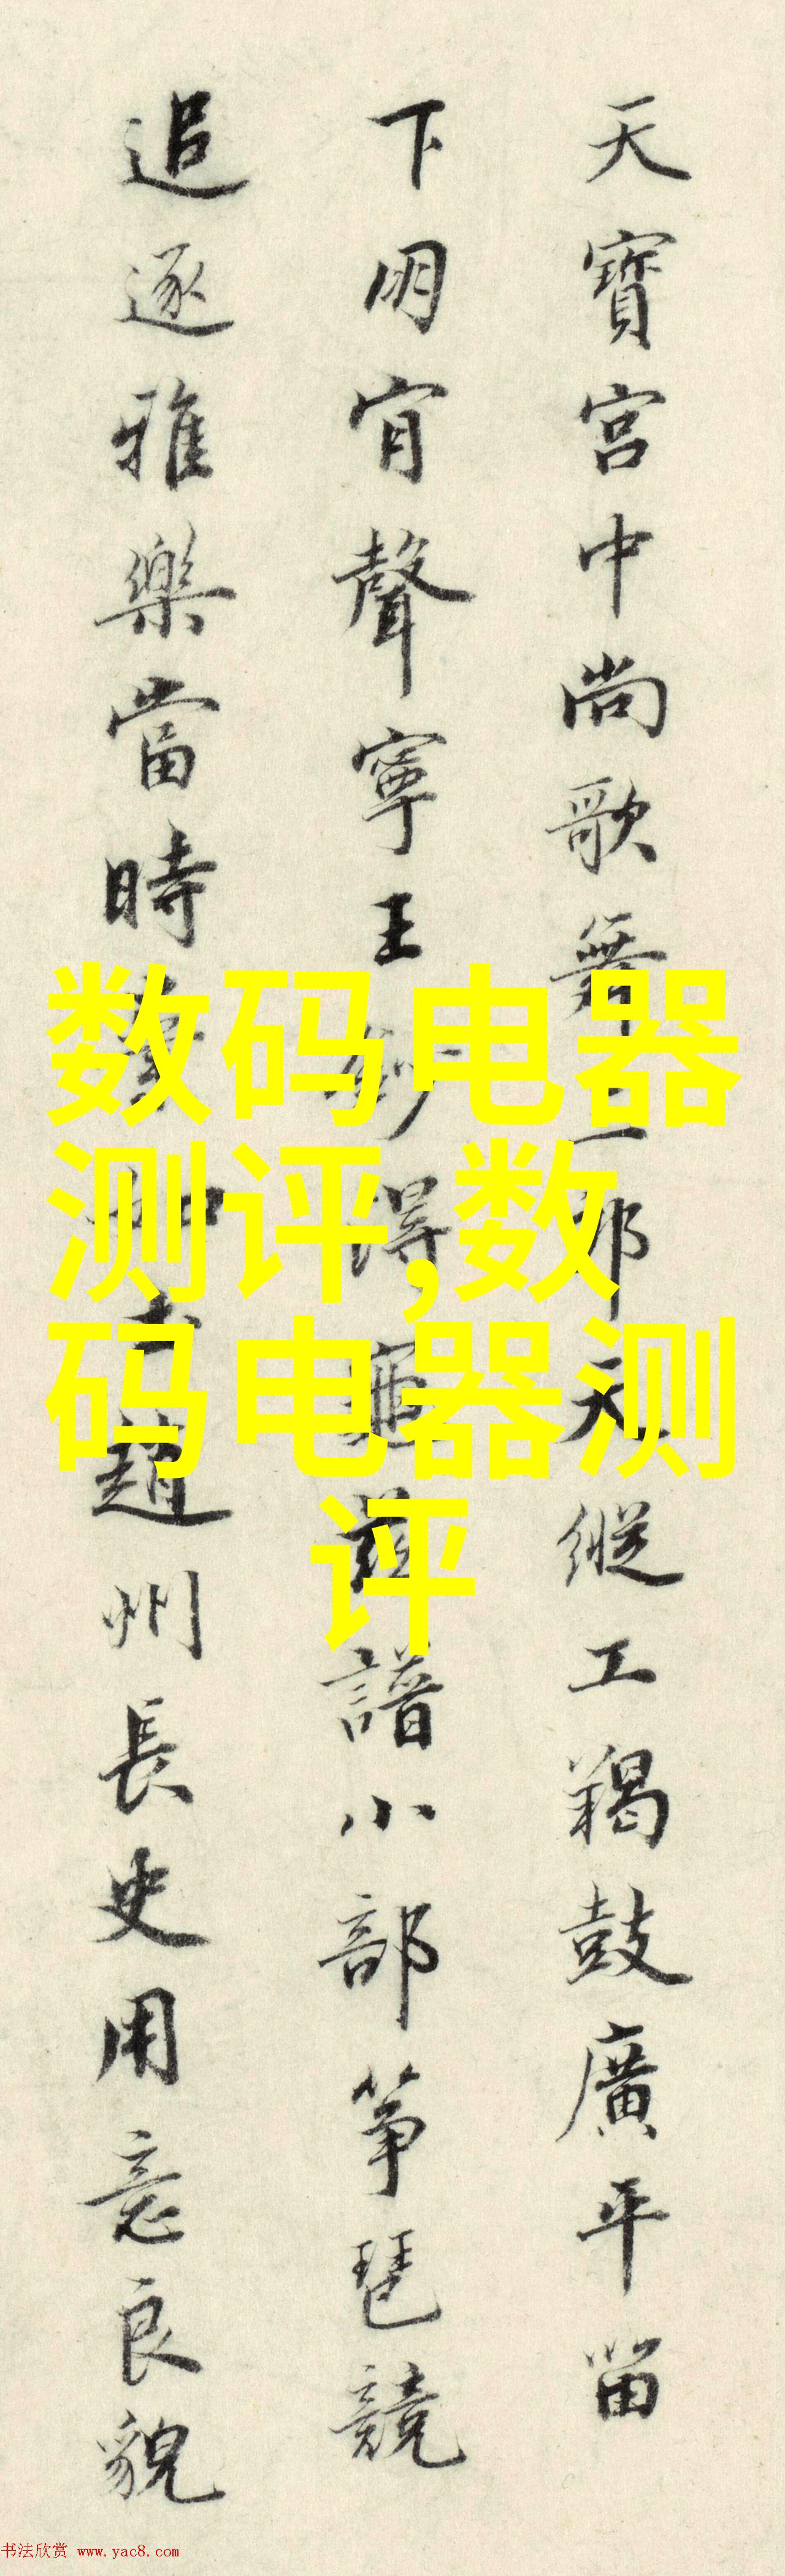 天寶宫中尚歌舞二郎天縱工羯鼓廣平㽞
下明宵聲寧王 得 譜小部筝琶競
追逐雅樂當時 趙州長史用意良貌
数码电器
测评,数
码电器测
评
书法欣赏 www.yac8.com